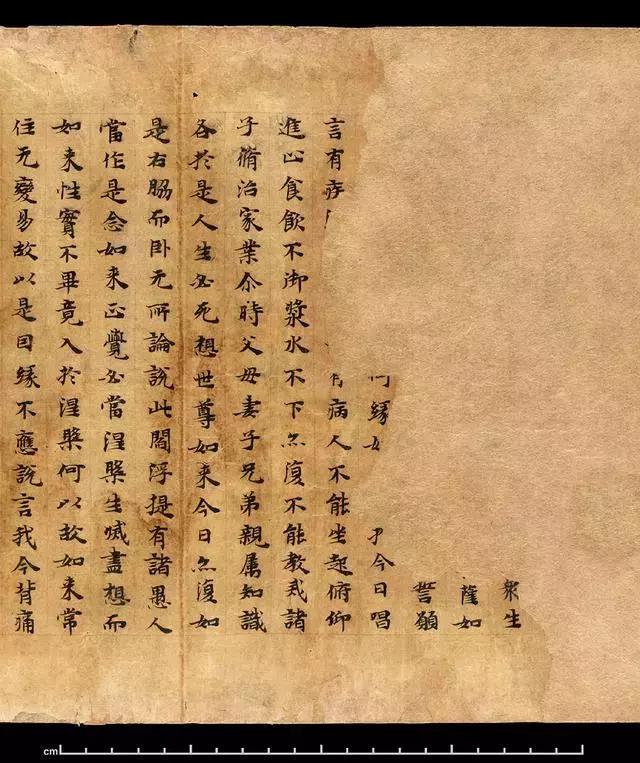 衆生
薩如
誓願
何緣今日唱
言有疾病人不能坐起俯仰
進止食飲不御漿水不下亦復不能教戒諸
子脩治家業尒時父母妻子兄弟親属知識
各於是人生必死想世尊如来今日亦復如
是右脇而卧无所論說此閻浮提有諸愚人
當作是念如来正覺必當涅槃生滅盡想而
如来性實不畢竟入於涅槃何以故如来常
住无變易故以是因緣不應說言我今背痛
cm